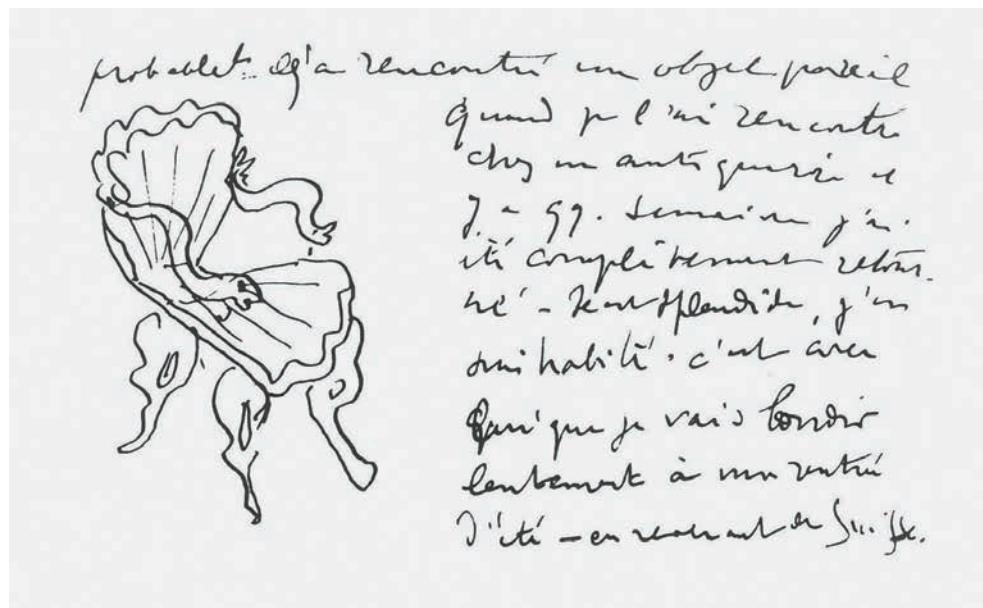 probablet. déjà rencontré un objet pareil
Quand je l'ai rencontré
chez un antiquaire il
y a qq. semaines j'ai
été complètement retour-
né - splendide, j'en
suis habité. c'est avec
que je vais bondir
lentement à ma rentrée
d'été - en revenant de Suisse.